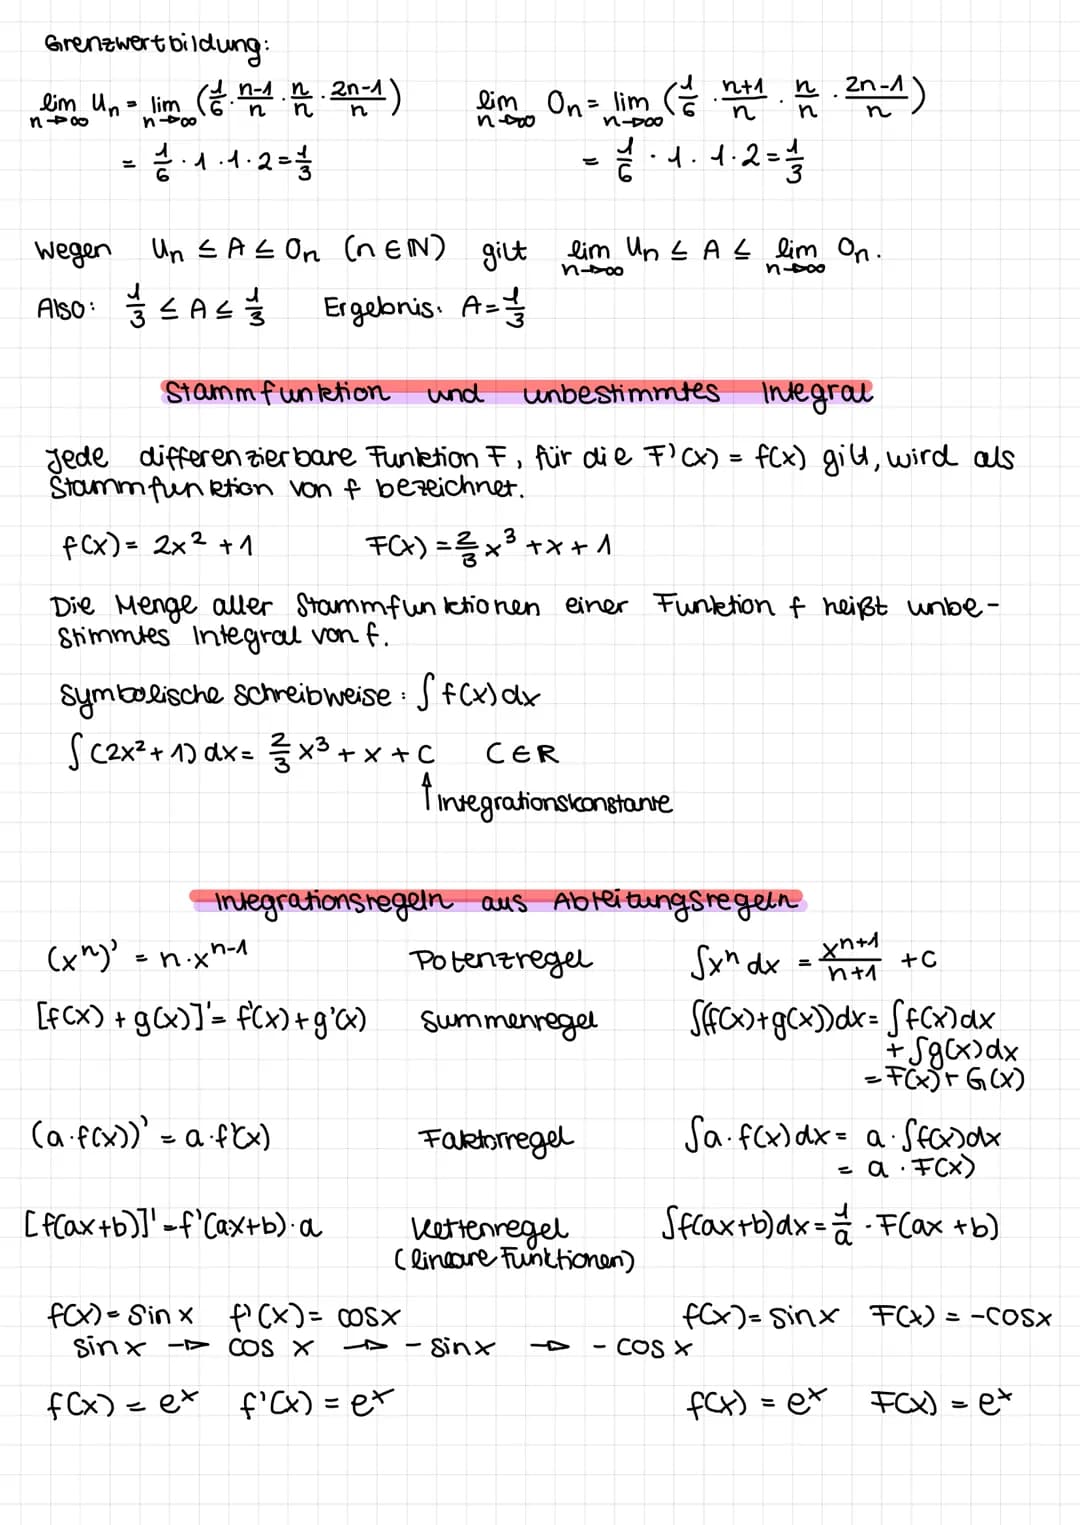 Grenzwertbildung:
lim n→∞ Un = lim n→∞ (1/6 · n-1/n · n/n · 2n-1/n)   lim n→∞ On = lim n→∞ (1/6 · n+1/n · n/n · 2n-1/n)
= 1/6 · 1 · 1 · 2 = 1/3   = 1/6 · 1 · 1 · 2 = 1/3
Wegen Un ≤ A ≤ On (n ∈ ℕ) gilt lim n→∞ Un ≤ A ≤ lim n→∞ On.
Also: 1/3 ≤ A ≤ 1/3   Ergebnis: A = 1/3
Stammfunktion und unbestimmtes Integral
Jede differenzierbare Funktion F, für die F'(x) = f(x) gilt, wird als
Stammfunktion von f bezeichnet.
f(x) = 2x² + 1   F(x) = 2/3 x³ + x + 1
Die Menge aller Stammfunktionen einer Funktion f heißt unbe-
stimmtes Integral von f.
Symbolische Schreibweise: ∫ f(x) dx
∫ (2x² + 1) dx = 2/3 x³ + x + C   C ∈ R
↑ Integrationskonstante
Integrationsregeln aus Ableitungsregeln
(xⁿ)' = n·xⁿ⁻¹   Potenzregel   ∫xⁿ dx = xⁿ⁺¹/n+1 + C
[f(x) + g(x)]' = f'(x) + g'(x)   Summenregel   ∫(f(x)+g(x))dx = ∫f(x)dx
+ ∫g(x)dx
= F(x) + G(x)
(a·f(x))' = a·f'(x)   Faktorregel   ∫a·f(x)dx = a·∫f(x)dx
= a · F(x)
[f(ax+b)]' = f'(ax+b)·a   Kettenregel   ∫f(ax+b)dx = 1/a · F(ax+b)
(lineare Funktionen)
f(x) = sin x   f'(x) = cos x   f(x) = sin x   F(x) = -cos x
sin x → cos x → - sin x → - cos x
f(x) = eˣ   f'(x) = eˣ   f(x) = eˣ   F(x) = eˣ